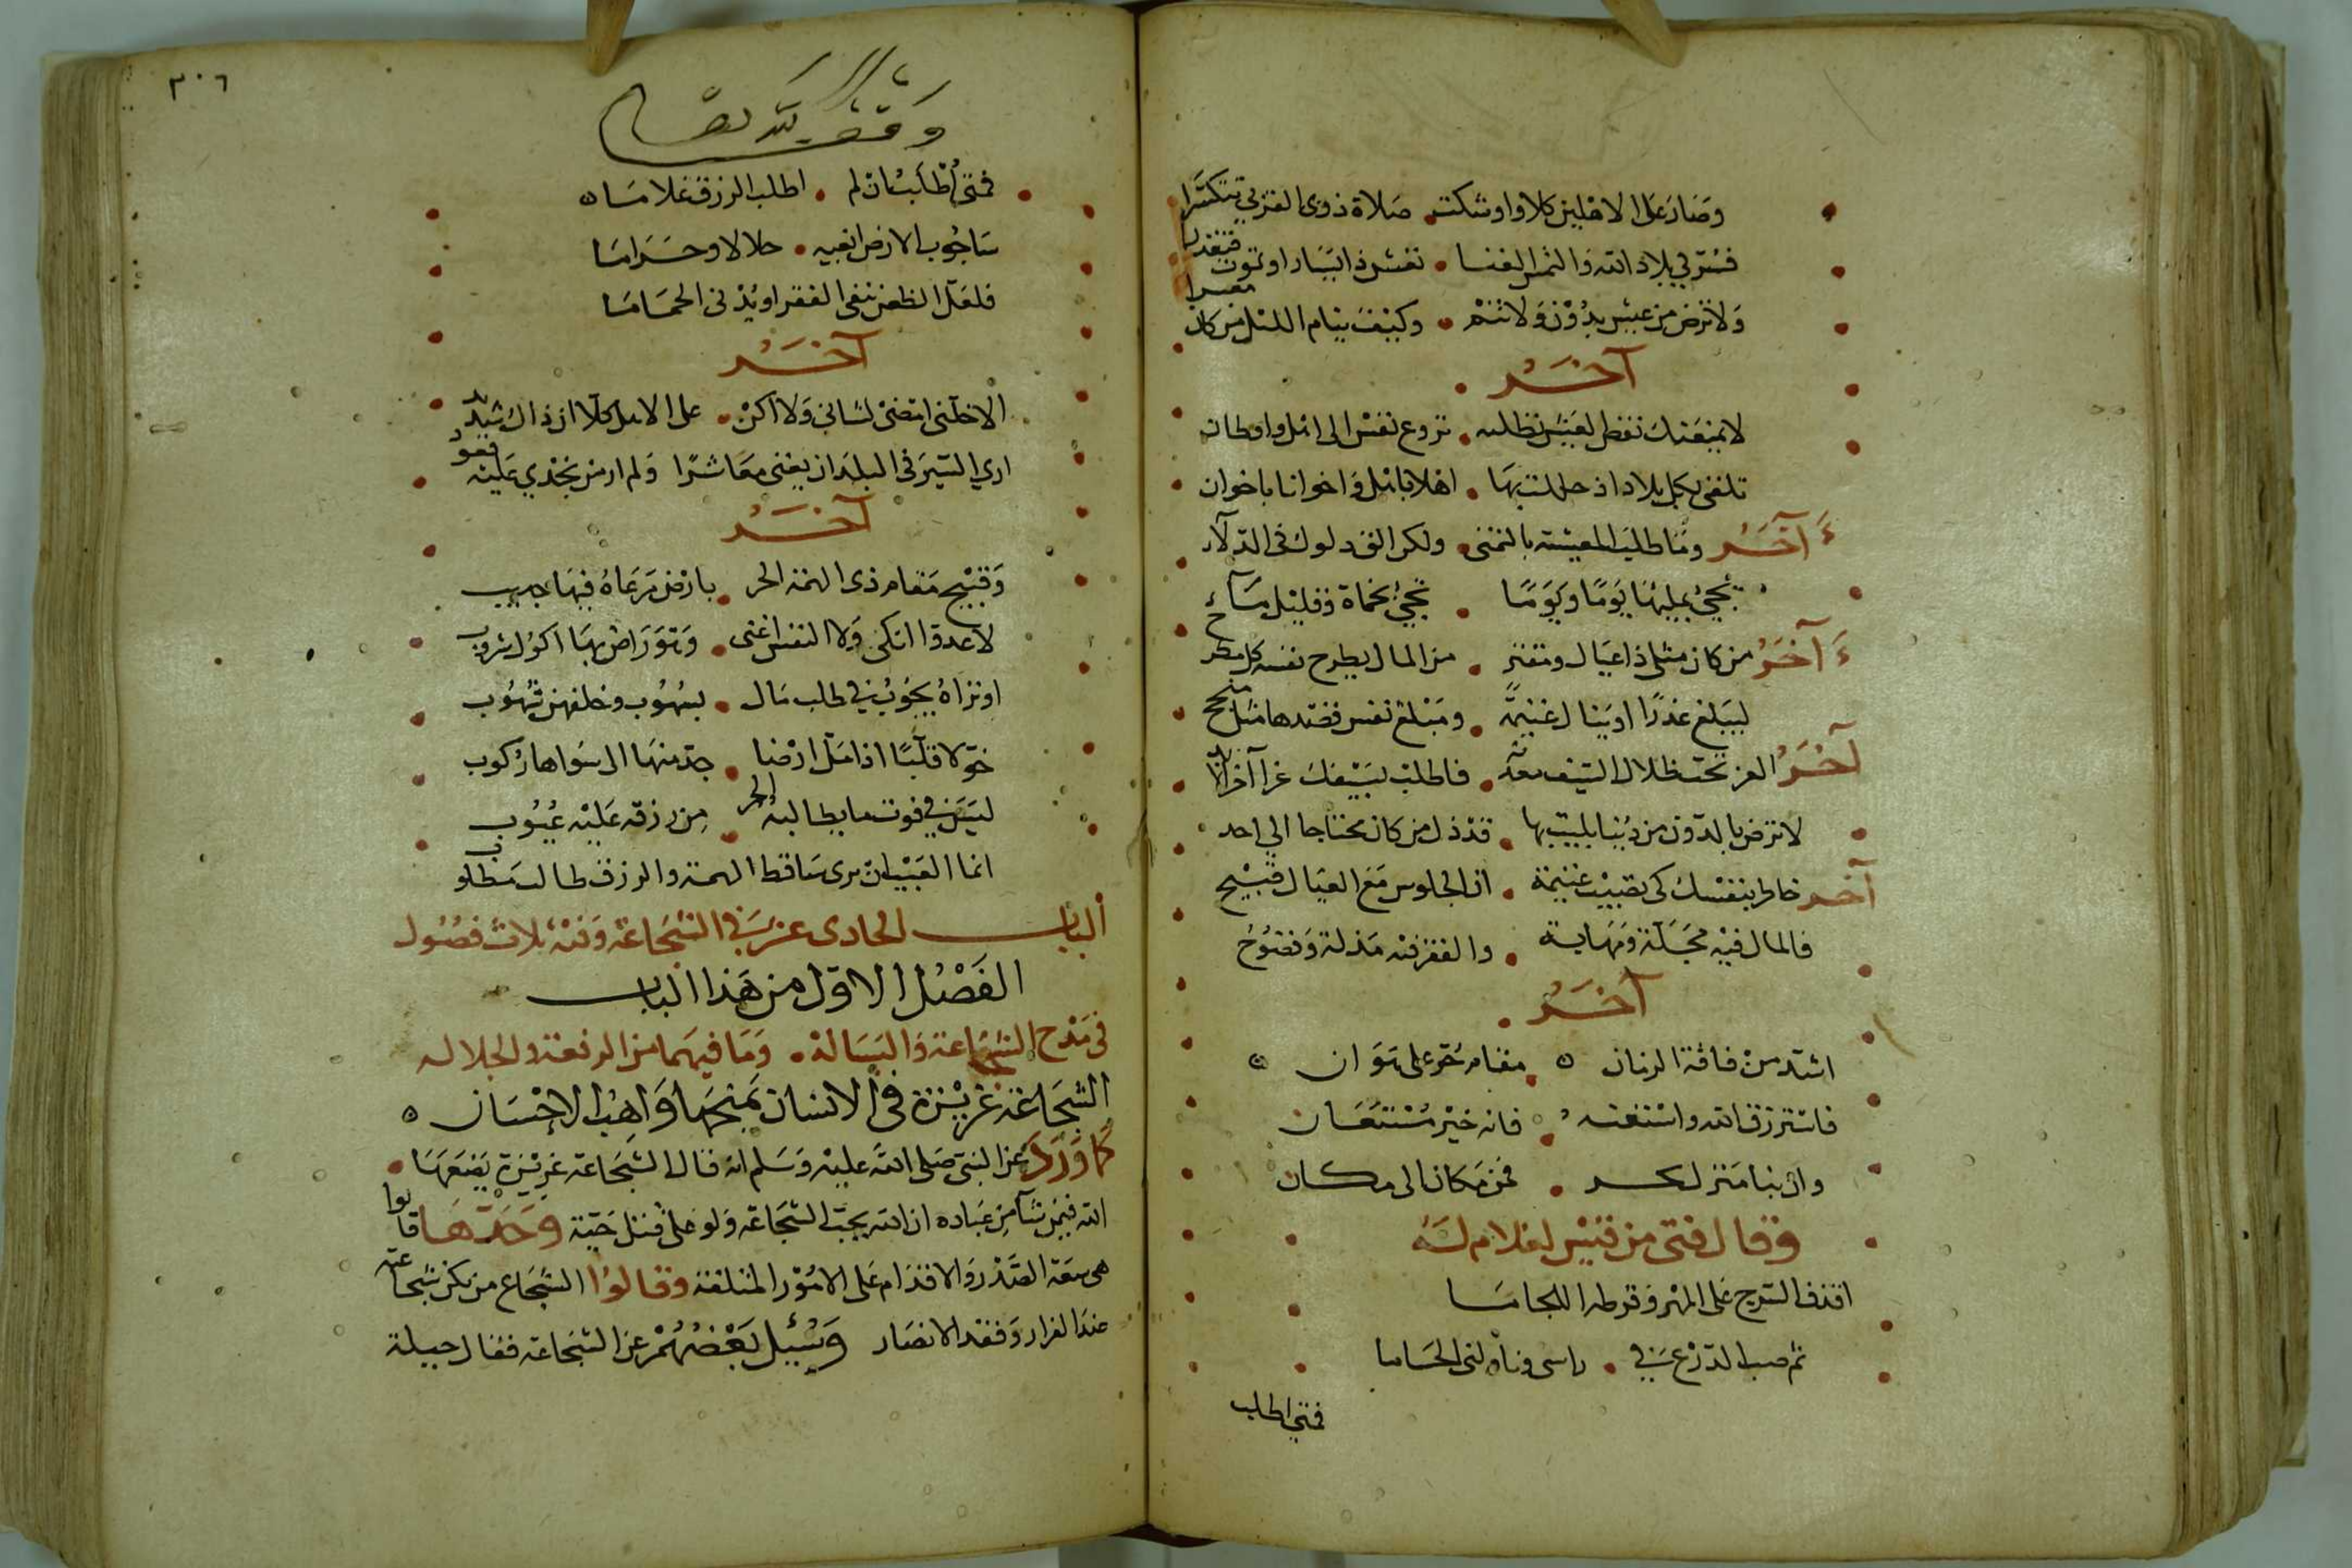 وصار على الاهلين كلا واوشكت صلاة ذوى القربى تتكسرا
فسر فى بلاد الله والتمس الغنا تعش ذا يسار او تموت فتعذرا
ولا ترض من عيش بدون ولا تنم وكيف ينام الليل من كان معسرا
آخر
لا يمنعنك خفض العيش تطلبه نزوع نفس الى اهل واوطان
تلقى بكل بلاد اذ حللت بها اهلا باهل واخوانا باخوان
آخر وما طلب المعيشة بالتمنى ولكن الق دلوك فى الدلاء
تجئ بمليها يوما ويوما تجئ بحماة وقليل ماء
آخر من كان مثلى ذا عيال ومقتر من المال يطرح نفسه كل مطرح
ليبلغ عذرا او ينال غنيمة ومبلغ نفس قصدها مثل منجح
آخر العز تحت ظلال السيف معدنه فاطلب بسيفك عزا آخر الابد
لا ترض بالدون من دنيا بليت بها قد ذل من كان محتاجا الى احد
آخر خاطر بنفسك كى تصيب غنيمة ان الجلوس مع العيال قبيح
فالمال فيه مجلة ومهابة والفقر فيه مذلة وفضوح
آخر
اشد من فاقة الزمان مقام حر على هوان
فاسترزق الله واستعنه فانه خير مستعان
وان نبا منزل بحر فمن مكان الى مكان
وقال فتى من قيس لغلام له
اقذف السرج على المهر وقرطه اللجاما
ثم صب الدرع فى راسى وناولنى الحساما
فمتى اطلب
٣٠٦
وقف لله تعالى
فمتى اطلب ان لم اطلب الرزق غلاما
ساجوب الارض ابغيه حلالا وحراما
فلعل الظعن ينفى الفقر او يدنى الحماما
آخر
الا خلنى امضى لشانى ولا اكن على الاهل كلا ان ذاك شديد
ارى السير فى البلدان يغنى معاشرا ولم ار من يجدي عليه قعود
آخر
وقبيح مقام ذى الهمة الحر بارض مرعاه فيها جديب
لا عدوا انكى ولا النفس اغنى وهو راض بها اكول شروب
او تراه يجوب فى طلب مال بسهوب وخلفهن سهوب
حولا قلبا اذا مل ارضا جد منها الى سواها ركوب
ليس فى فوت ما يطالبه الحر من رزقه عليه عيوب
انما العيب ان يرى ساقط الهمة والرزق طالب مطلوب
الباب الحادى عشر فى الشجاعة وفيه ثلاث فصول
الفصل الاول من هذا الباب
فى مدح الشجاعة والبسالة وما فيهما من الرفعة والجلاله
الشجاعة غريزة فى الانسان يمنحها واهب الاحسان
كما ورد عن النبى صلى الله عليه وسلم انه قال الشجاعة غريزة يضعها
الله فيمن يشآ من عباده ان الله يحب الشجاعة ولو على قتل حية وحدها قالوا
هى سعة الصدر والاقدام على الامور المتلفة وقالوا الشجاع من يكن شجاعته
عند الفرار وفقد الانصار وسئيل بعضهم عن الشجاعة فقال جبلة